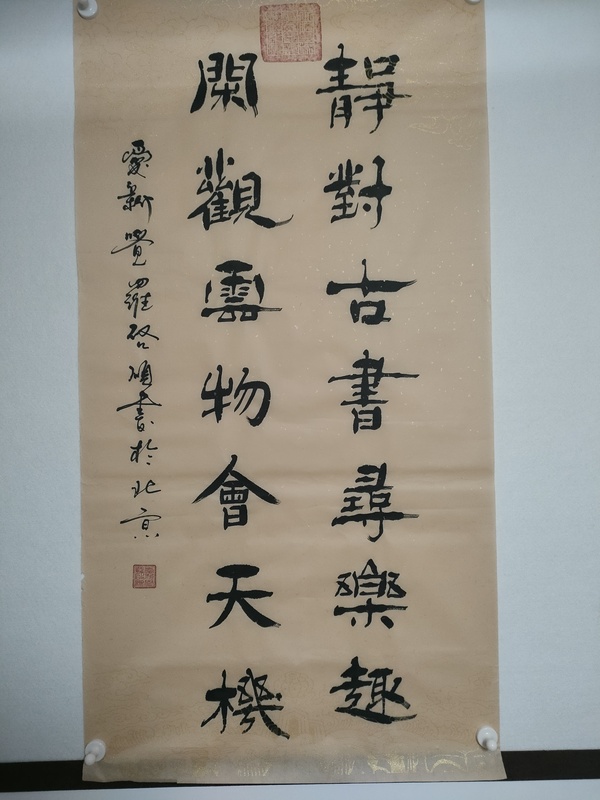 靜對古書尋樂趣
閑觀雲物會天機
愛新覺羅啓碩書於北京